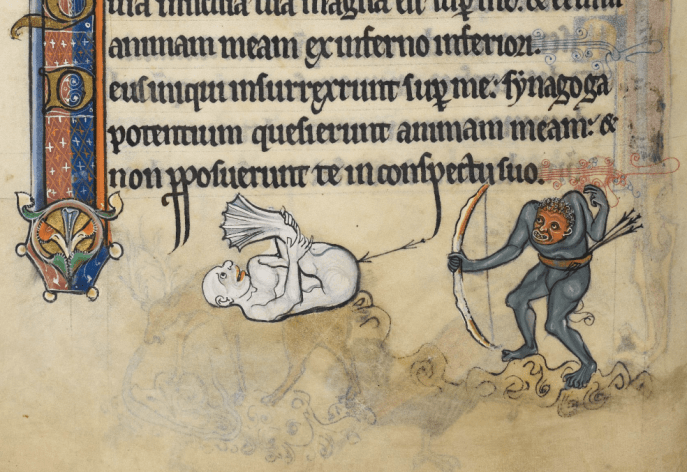 tua misericordia tua magna est sup me: & eruisti
animam meam ex inferno inferiori.
Deus iniqui insurrexerunt sup me: synagoga
potentium quesierunt animam meam: &
non pposuerunt te in conspectu suo.